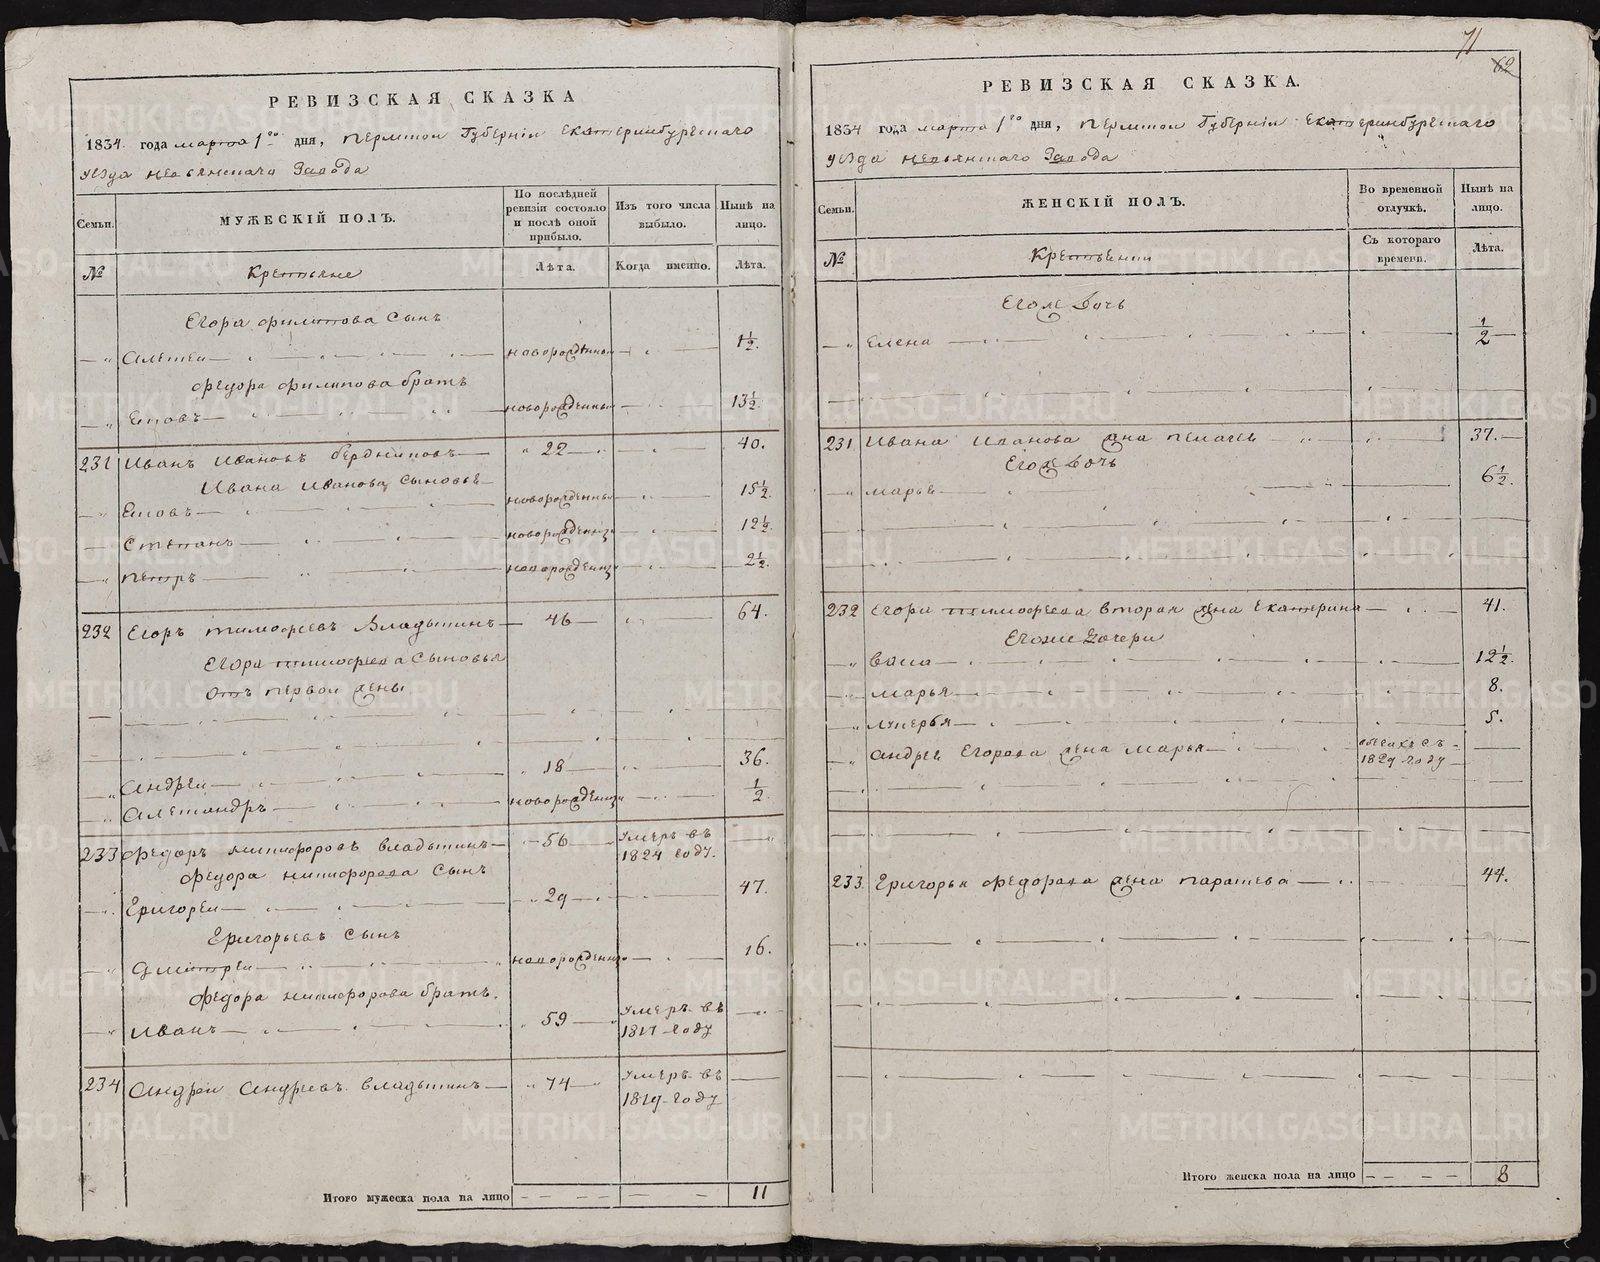 РЕВИЗСКАЯ СКАЗКА
1834. года марта 1го дня, Пермской Губернiи Екатеринбургскаго
уезда Невьянскаго Завода
Семьи.
МУЖЕСКIЙ ПОЛЪ.
По послѣдней ревизiи состояло и послѣ оной прибыло.
Изъ того числа выбыло.
Нынѣ на лицо.
№
Крестьяне
Лѣта.
Когда именно.
Лѣта.
Егора Филипова Сынъ
Алексей новорожденный 1½.
Федора Филипова братъ
новорожденный 13½.
231 Иванъ Ивановъ Бердниковъ 22 40.
Ивана Иванова Сыновья
новорожденный 15½.
Степанъ новорожденный 12½.
Петръ новорожденный 2½.
232 Егоръ Тимофеевъ Владыкинъ 46 64.
Егора Тимофеева Сыновья
отъ первой жены
Андрей 18 36.
Александръ новорожденный ½
233 Федоръ Никифоровъ Владыкинъ 56 умеръ въ 1824 году.
Федора Никифорова Сынъ
Григорей 29 47.
Григорьевъ Сынъ
Дмитрей новорожденный 16.
Федора Никифорова братъ.
Иванъ 59 умеръ въ 1817 году
234 Андрей Андреевъ Владыкинъ 74 умеръ въ 1819 году
Итого мужеска пола на лицо 11
71
62
РЕВИЗСКАЯ СКАЗКА.
1834 года марта 1го дня, Пермской Губернiи Екатеринбургскаго
уезда Невьянскаго Завода
Семьи.
ЖЕНСКIЙ ПОЛЪ.
Во временной отлучкѣ.
Нынѣ на лицо.
№
Съ котораго времени.
Лѣта.
Егоже Дочь
Елена ½
231 Ивана Иванова жена 37.
Егоже Дочь
Марья 6½.
232 Егора Тимофеева вторая жена Екатерина 41.
Егоже Дочери
12½.
Марья 8.
Лукерья 5.
Андрея Егорова жена Марья 1829 году
233. Григорья Федорова жена Парасковья 44.
Итого женска пола на лицо 8
METRIKI.GASO-URAL.RU